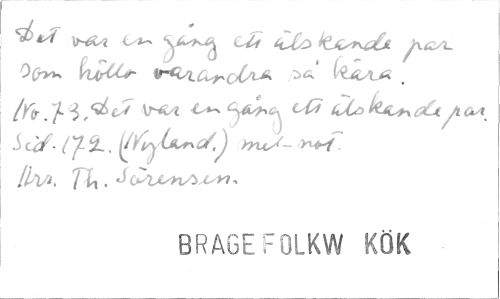 Det var en gång ett älskande par
som höllo varandra så kära.
No. 73. Det var en gång ett älskande par.
Sid. 172. (Nyland.) mel-not.
Arr. Th. Sörensen.
BRAGE FOLKW KÖK